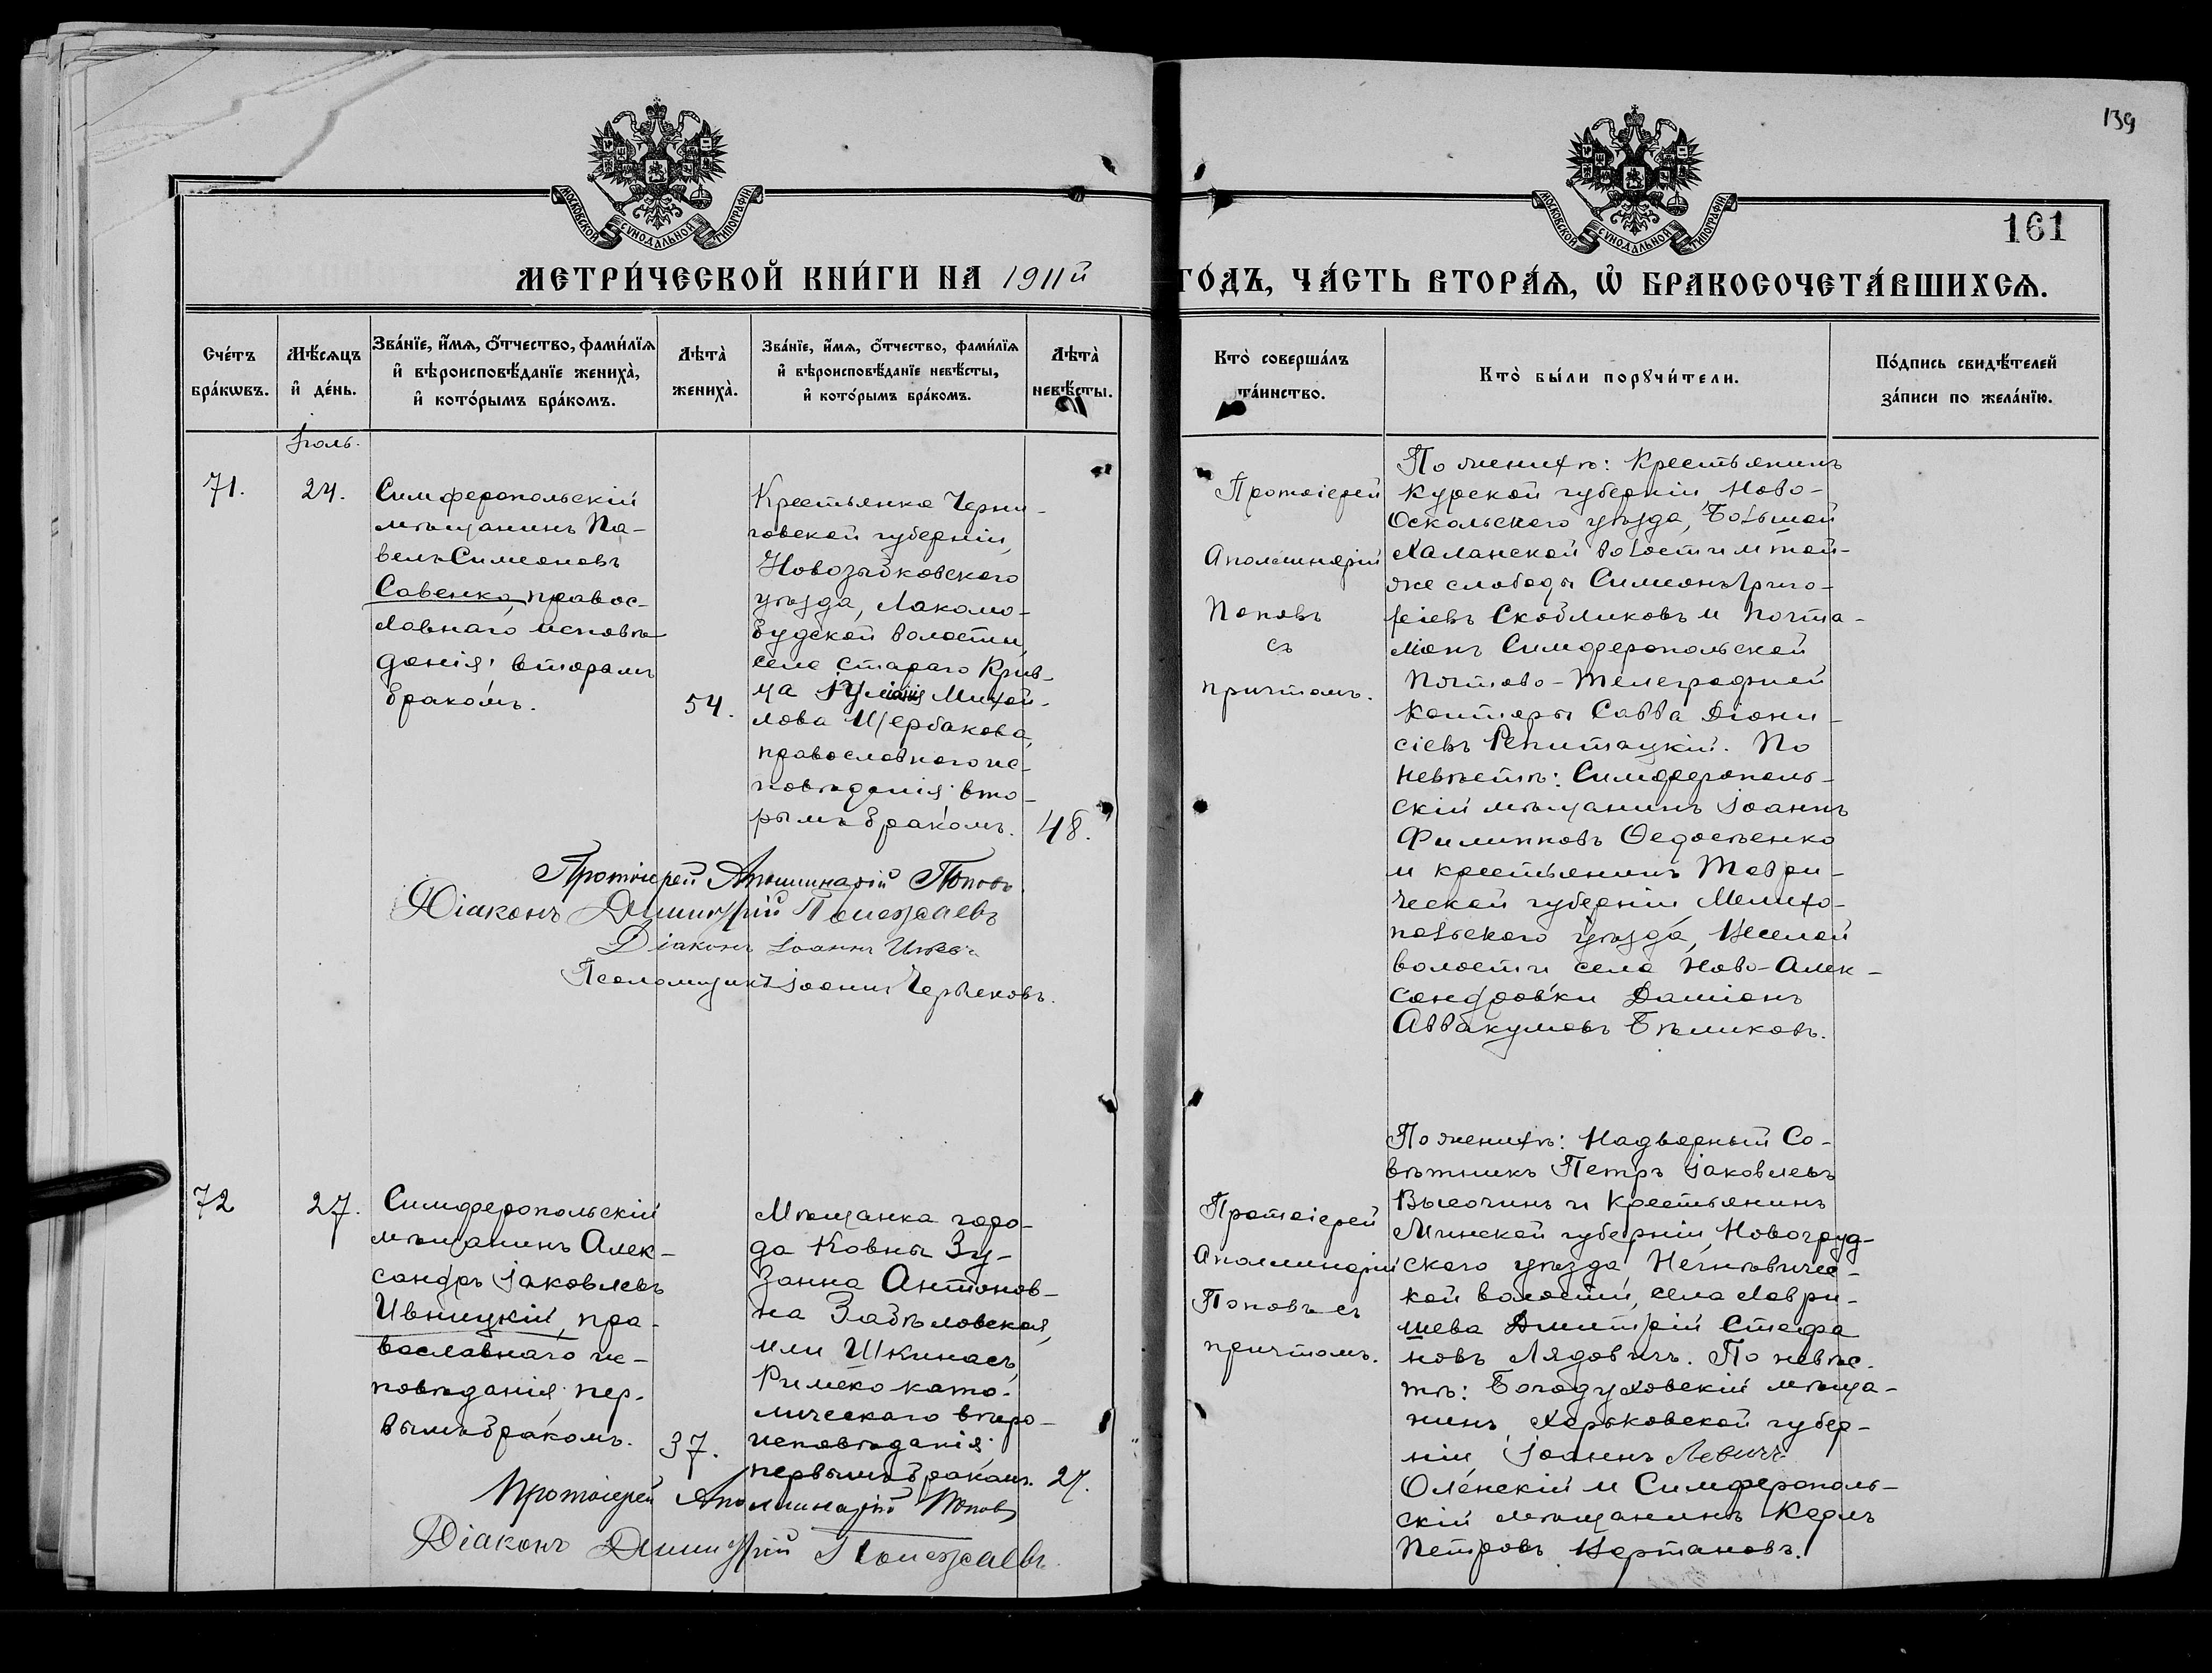 139
161
МОСКОВСКОЙ СѴНОДАЛЬНОЙ ТИПОГРАФІИ
МОСКОВСКОЙ СѴНОДАЛЬНОЙ ТИПОГРАФІИ
МЕТРИ́ЧЕСКОЙ КНИ́ГИ НА 1911й
ГО́ДЪ, ЧА́СТЬ ВТОРА́Ѧ, Ѡ҆ БРАКОСОЧЕТА́ВШИХСѦ.
Сче́тъ
бра́кѡвъ.
Мѣ́сѧцъ
и҆ де́нь.
Зва́нїе, и҆́мѧ, ѻ҆́тчество, фами́лїѧ
и҆ вѣроисповѣ́данїе жениха̀,
и҆ кото́рымъ бра́комъ.
Лѣта̀
жениха̀.
Зва́нїе, и҆́мѧ, ѻ҆́тчество, фами́лїѧ
и҆ вѣроисповѣ́данїе невѣ́сты,
и҆ кото́рымъ бра́комъ.
Лѣта̀
невѣ́сты.
Кто̀ соверша́лъ
та́инство.
Кто̀ бы́ли порꙋчи́тели.
По́дпись свидѣ́телей
за́писи по жела́нїю.
Іюль.
71.
24.
Симферопольскій
мѣщанинъ Па-
велъ Симеоновъ
Савенко, правос-
лавнаго исповѣ-
данія, вторымъ
бракомъ.
54.
Крестьянка Черни-
говской губерніи,
Новозыбковского
уѣзда, Лакомо-
будской волости,
села Стараго Крив-
ца Іуліанія Михай-
лова Щербакова,
православного ис-
повѣданія, вто-
рымъ бракомъ.
48.
Протоіерей
Аполлинарій
Поповъ
съ
причтомъ.
По женихѣ: Крестьянинъ
Курской губерніи Ново-
Оскольского уѣзда, Большой
Халанской волости и той-
же слободы Симеонъ Григо-
ріевъ Скобликовъ и Почта-
ліонъ Симферопольской
Почтово-Телеграфной
Конторы Савва Діони-
сіевъ Репитацкій. По
невѣстѣ: Симферополь-
скій мѣщанинъ Іоаннъ
Филипповъ Ѳедосѣенко
и крестьянинъ Таври-
ческой губерніи Мелито-
польского уѣзда, Веселой
волости села Ново-Алек-
сандровки Даміанъ
Аввакумовъ Бѣликовъ.
Протоіерей Аполлинарій Поповъ
Діаконъ Димитрій Полежаевъ
Діаконъ Іоаннъ
Псаломщикъ Іоаннъ
72
27.
Симферопольскій
мѣщанинъ Алек-
сандръ Іаковлевъ
Ивницкій, пра-
вославнаго ис-
повѣданія, пер-
вымъ бракомъ.
37.
Мѣщанка горо-
да Ковны Зу-
занна Антонов-
на Забѣловская,
или Шкинасъ,
Римско като-
лическаго вѣро-
исповѣданія,
первымъ бракомъ.
27.
Протоіерей
Аполлинарій
Поповъ съ
причтомъ.
По женихѣ: Надворный Со-
вѣтникъ Петръ Іаковлевъ
Высочинъ и Крестьянинъ
Минской губерніи, Новогруд-
ского уѣзда, Негнѣвичс-
кой волости, села Лаври-
шева Димитрій Стефа
новъ Лядовичъ. По невѣс-
тѣ: Богодуховскій мѣща-
нинъ, Харьковской губер-
ніи, Іоаннъ Левичъ
Оленскій и Симферополь-
скій мѣщанинъ Карлъ
Петровъ Вартановъ.
Протоіерей Аполлинарій Поповъ
Діаконъ Димитрій Полежаевъ